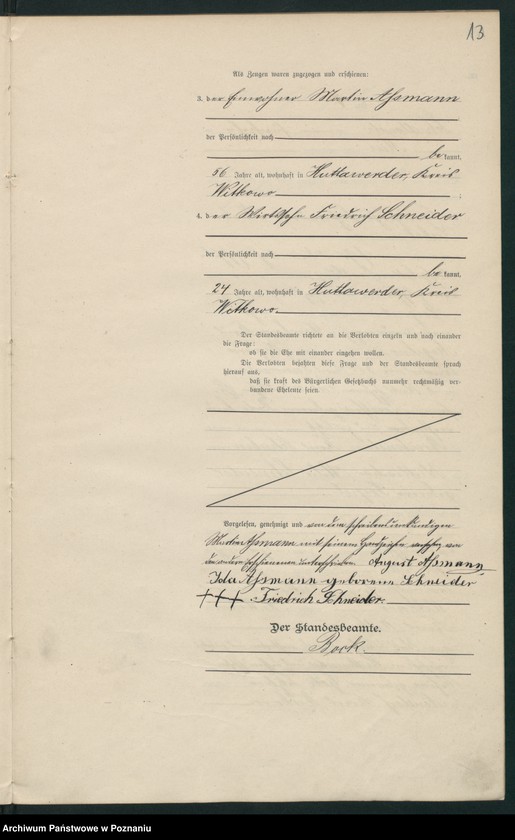 13
Als Zeugen waren zugezogen und erschienen:
3. der Einwohner Martin Aßmann
der Persönlichkeit nach
be kannt,
56 Jahre alt, wohnhaft in Huttawerder, Kreis
Witkowo ;
4. der Wirtssohn Friedrich Schneider
der Persönlichkeit nach
be kannt,
24 Jahre alt, wohnhaft in Huttawerder, Kreis
Witkowo.
Der Standesbeamte richtete an die Verlobten einzeln und nach einander
die Frage:
ob sie die Ehe mit einander eingehen wollen.
Die Verlobten bejahten diese Frage und der Standesbeamte sprach
hierauf aus,
daß sie kraft des Bürgerlichen Gesetzbuchs nunmehr rechtmäßig ver-
bundene Eheleute seien.
Vorgelesen, genehmigt und von dem schreibensunkundigen
Martin Aßmann mit seinem Handzeichen versehen von
den andern Erschienenen unterschrieben. August Aßmann
Ida Aßmann geborene Schneider
+++ Friedrich Schneider.
Der Standesbeamte.
Bock.
Archiwum Państwowe w Poznaniu